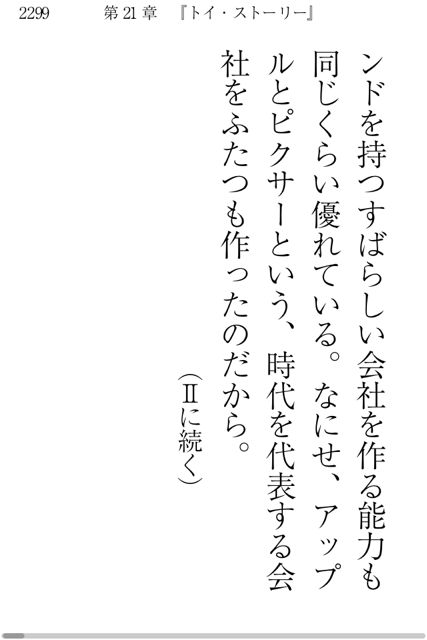 2299 第21章 『トイ・ストーリー』
ンドを持つすばらしい会社を作る能力も
同じくらい優れている。なにせ、アップ
ルとピクサーという、時代を代表する会
社をふたつも作ったのだから。
（Ⅱに続く）